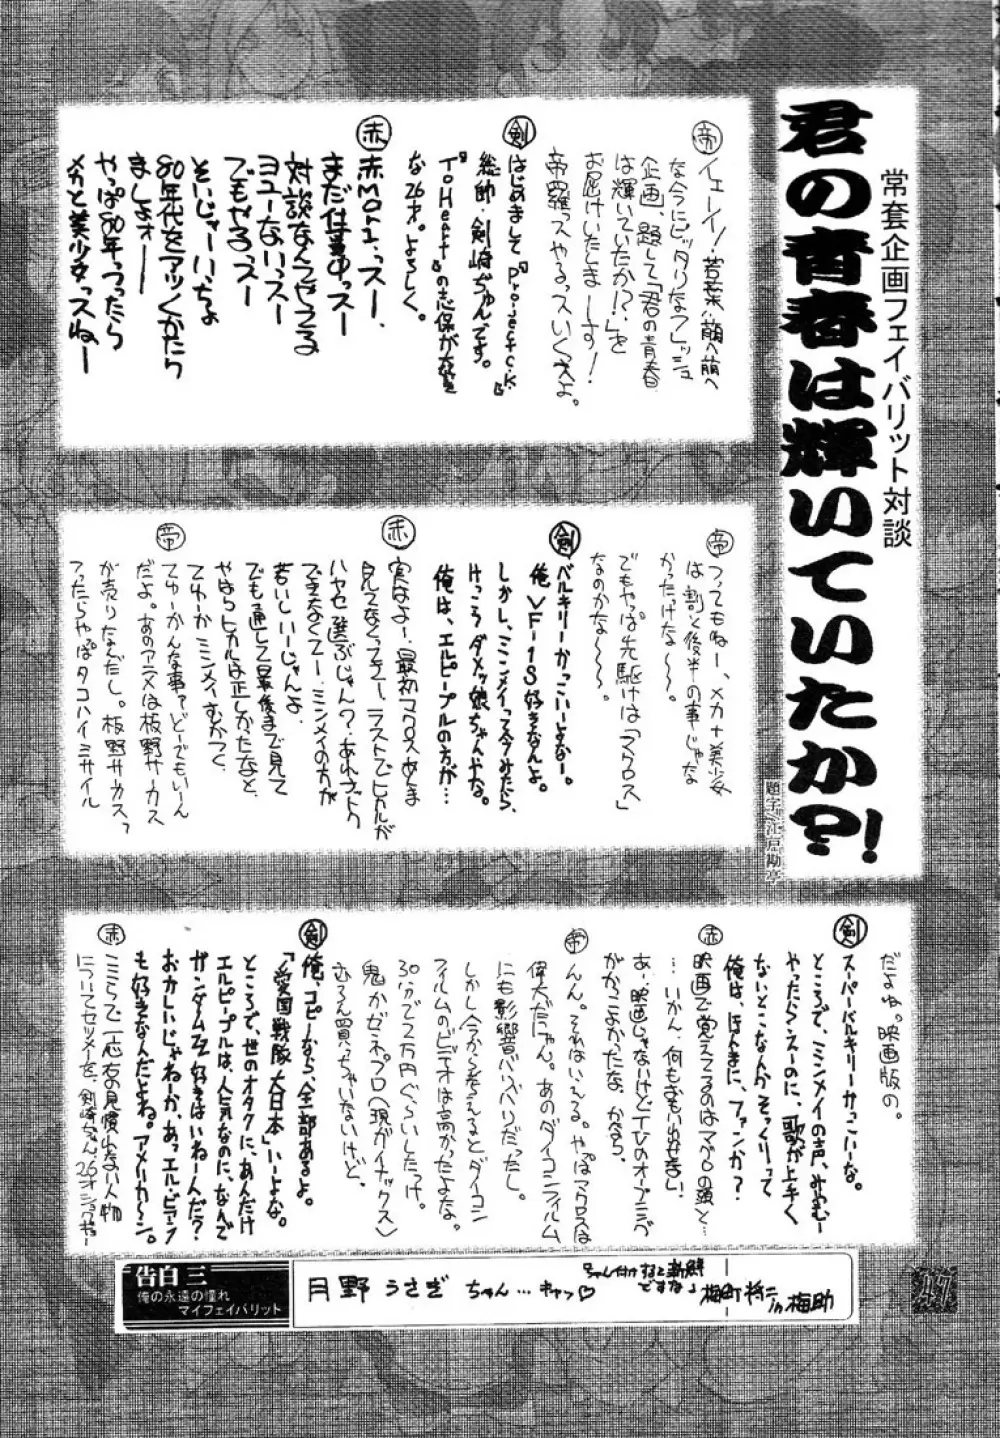 常套企画フェイバリット対談
君の青春は輝いていたか?!
題字/江戸勘亭
帝 イェーイ!若葉が萌へ萌へ
な今にピッタリなフレッシュ
企画、題して「君の青春
は輝いていたか!?」を
お届けいたしまーす!
帝羅っスやるっスいくスよ。
剣 はじめまして『Project.C.K.』
総帥・剣崎ぢゅんです。
『ToHeart』の志保が好き
な26才。よろしく。
赤 赤Moriっスー
まだ仕事中っスー
対談なんてやってる
ヨユーないっスー
でもやるっスー
そいじゃーいっちょ
80年代をアックかたり
ましょォー
やっぱ80年っつったら
メカと美少女っスねー
帝 つってもねー、メカ+美少女
は割と後半の事じゃな
かったっけな〜〜。
でもやっぱ先駆けは「マクロス」
なのかな〜〜。
剣 バルキリーかっこいーよなー。
俺VF-1S好きなんよ。
しかし、ミンメイって今みたら、
けっこうダメッ娘ちゃんやな。
俺は、エルピープルの方が…
赤 実はよー、最初マクロスあんま
見てなくってェー、ラストでヒカルが
ハヤセ選ぶじゃん?あれナットク
できなくてー、ミンメイの方が
若いしいーじゃんよ。
でも通して最後まで見て
やはりヒカルは正しかったなと。
てゆーかミンメイむかつく。
帝 てゆーかんな事ァどーでもいーん
だよ。あのアニメは板野サーカス
が売りなんだし。板野サーカス、
つったらやっぱタコハイミサイル
だよね。映画版の。
剣 スーパーバルキリーかっこいーな。
ところで、ミンメイの声、みやむー
やったらンスーのに、歌が上手く
ないとこなんかそっくりって
俺は、ほんまに、ファンか?
赤 映画で覚えてるのはマグロの頭と
…いかん、何もおもい出せない
あ・映画じゃないけどTVのオープニング
がかっこよかったな。かなり。
帝 んん。それはいえる。やっぱマクロスは
偉大だにゃん。あのダイコンフィルム
にも影響バリバリだったし。
しかし今から考えるとダイコン
フィルムのビデオは高かったよな。
30分で2万円ぐらいしたっけ。
鬼かゼネプロ(現ガイナックス)
むろん買っちゃいないけど。
剣 俺、コピーなら、全部あるよ。
「愛国戦隊 大日本」いーよな。
ところで、世のオタクに、あんだけ
エルピープルは、人気なのに、なんで
ガンダムZZ好きはいねーんだ?
おかしいじゃねーか、あっエル・ビアンノ
も好きなんだよね。アメリカ〜ン。
赤 ここらで一応お見慣れない人物
についてセツメーを。剣崎ちゃん、26才
告白三
俺の永遠の憧れ
マイフェイバリット
月野 うさぎ ちゃん…キャッ♡
ちゃん付けすると新鮮
ですね♪
梅町 裕二
in 梅助
47